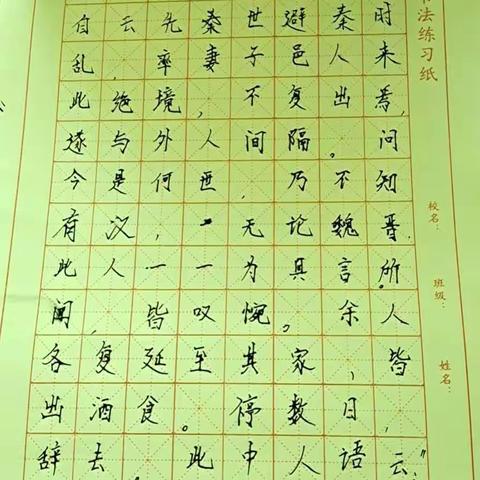 自云先秦世避秦时
乱，率妻子邑人来
此绝境，不复出焉，
遂与外人间隔。问
今是何世，乃不知
有汉，无论魏晋.
此人一一为具言所
闻，皆叹惋。余人
各复延至其家，皆
出酒食。停数日，
辞去。此中人语云："
书法练习纸
校名：
班级：
姓名：